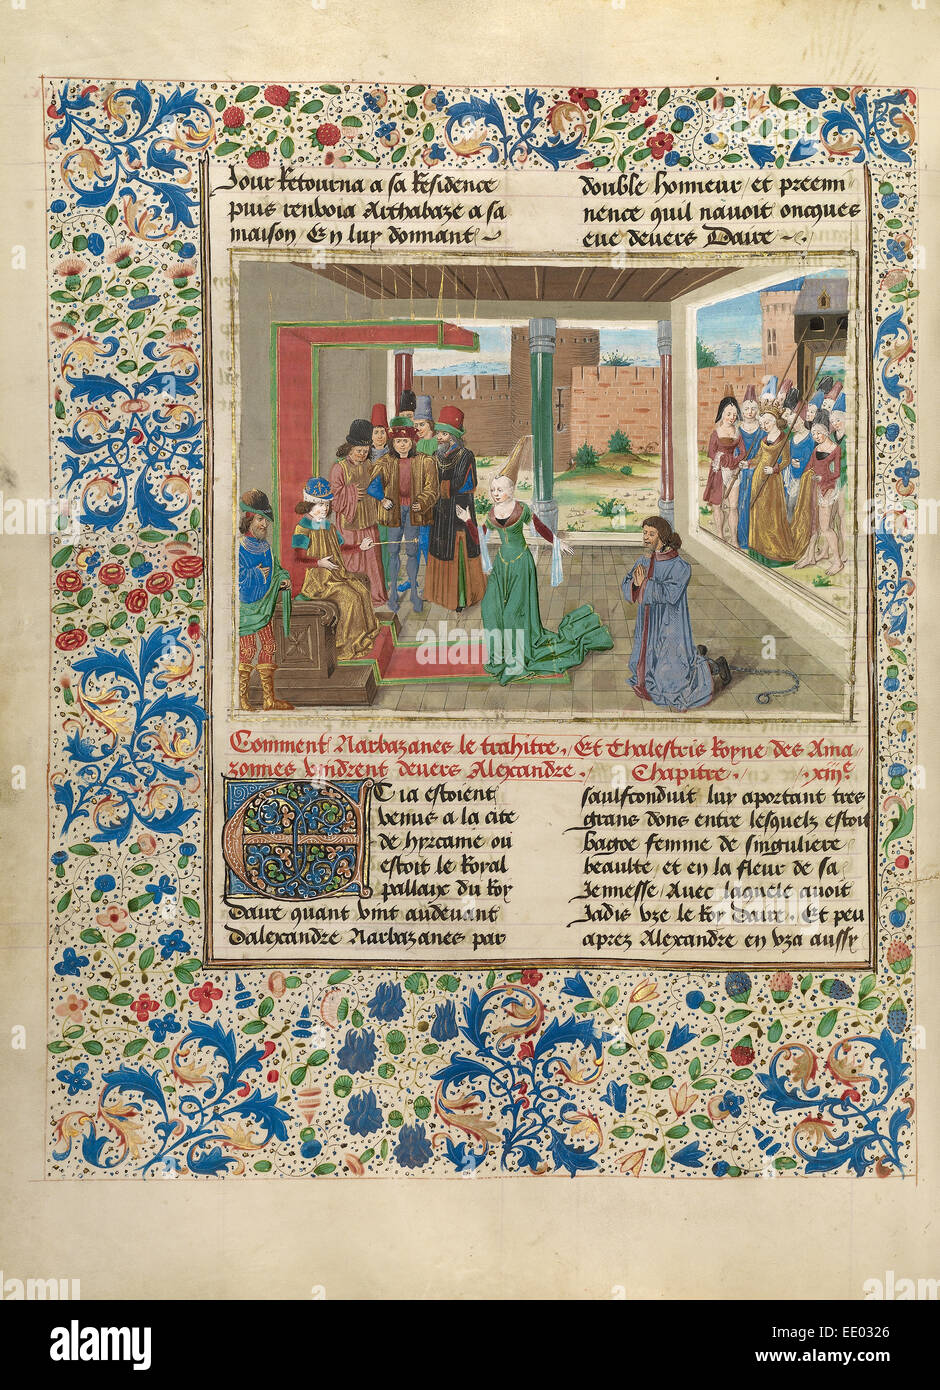 Jour Retourna a sa Residence
puis renvoia Arthabaze a sa
maison En luy donnant
double honneur et preemi
nence quil navoit oncques
eue devers Daire
Comment Narbazanes le trahitre, Et Thalestris Royne des Ama
zonnes vindrent devers Alexandre. Chapitre. xiiije
Et ia estoient
venus a la cite
de hyrcame ou
estoit le Royal
pallaix du Roy
Daire quant vint audevant
dalexandre Narbazanes par
saulfconduit luy aportant tres
grans dons entre lesquelz estoit
bagoe femme de singuliere
beaulte et en la fleur de sa
Jennesse, Avec laquele avoit
Jadis vze le Roy Daire. Et peu
aprez Alexandre en vza aussy
alamy stock photo
alamy
www.alamy.com
Image ID: EE0326